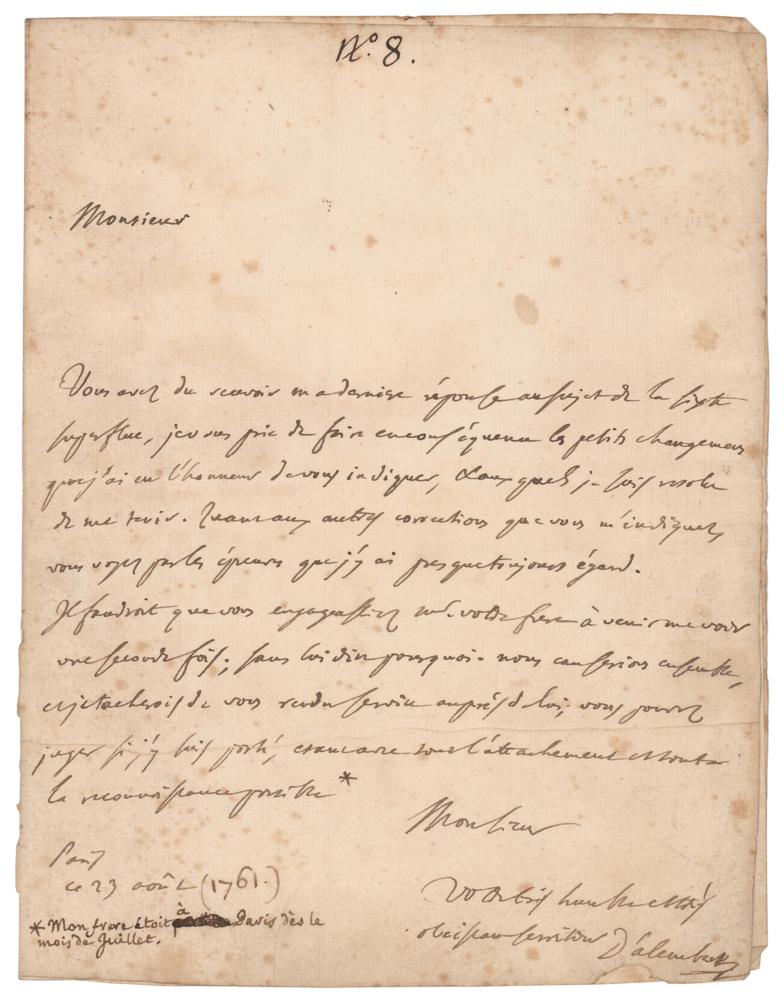 N.º 8.
Monsieur
Vous avez du recevoir ma derniere réponse au sujet de la sixte
superflue, je vous prie de faire en conséquence les petits changemens
que j'ai eu l'honneur de vous indiquer, & aux quels je suis resolu
de me tenir. Quant aux autres corrections que vous m'indiquez,
vous voyez par les épreuves que j'y ai presque toujours égard.
Il faudroit que vous engageassiez mr. votre frere à venir me voir
une seconde fois, sans lui dire pourquoi. nous causerions ensemble,
et je tacherois de vous rendre service auprès de lui; vous pouvez
juger si j'y suis porté, etant avec tout l'attachement et toute
la reconnoissance possible *
Monsieur
Paris
ce 23 août (1761.)
votre très humble et très
obeissant serviteur D'alembert
* Mon frere étoit à Paris dès le
mois de Juillet.